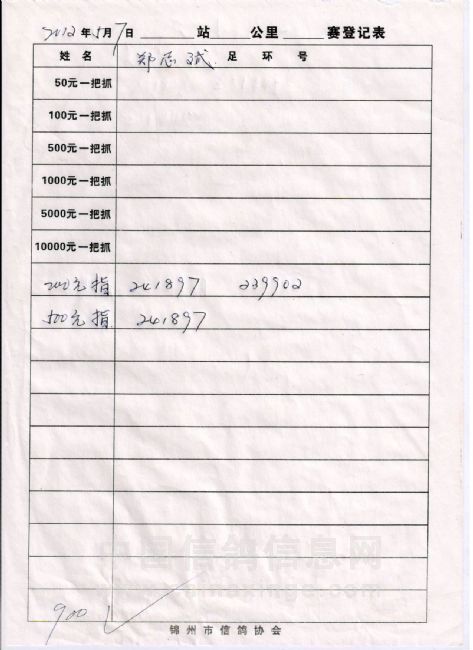 2012年5月7日 ____站____公里____赛登记表
姓名 郑志斌 足环号
50元一把抓
100元一把抓
500元一把抓
1000元一把抓
5000元一把抓
10000元一把抓
200元指 241897 239902
500元指 241897
中国信鸽信息网
www.chinaxinge.com
900 √
锦州市信鸽协会